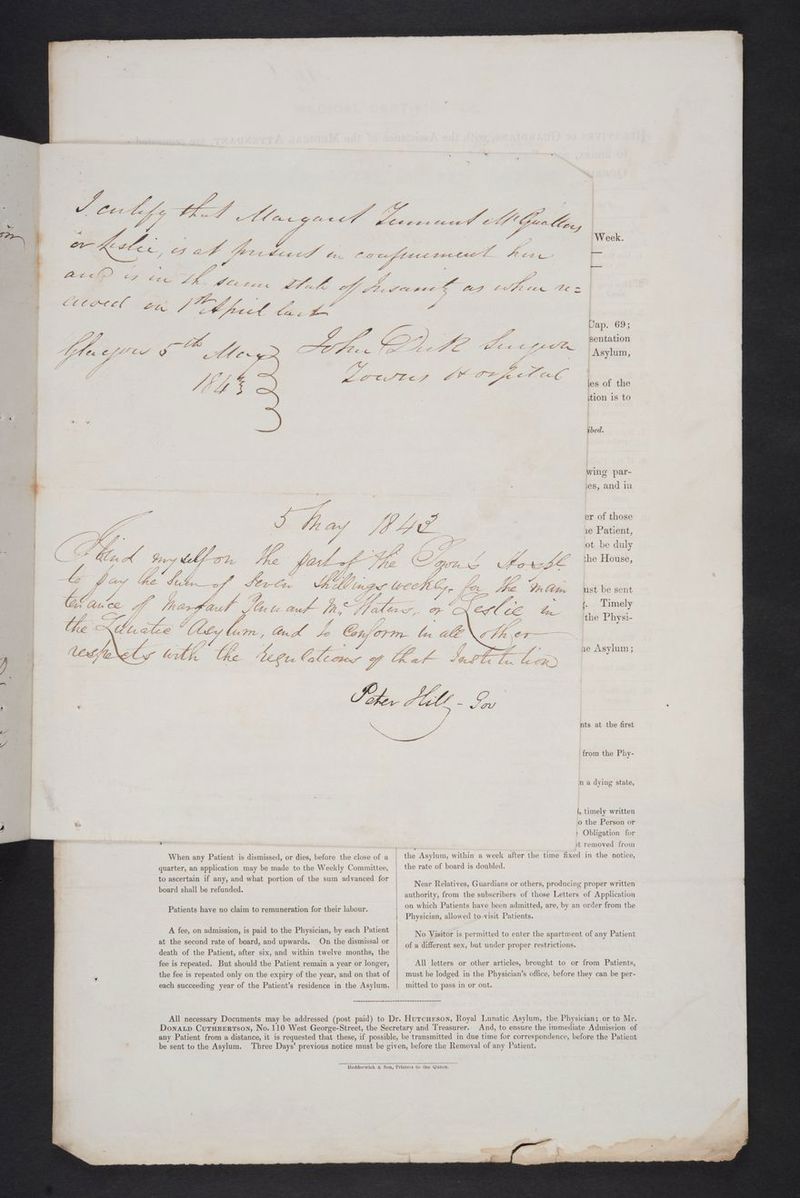 I certify that Margaret Tennant McQuatters
or Leslie, is at present in confinement here
and is in the same state of Insanity as when re=
ceived on 1st April last
Glasgow 5th May
1843
John Dick Surgeon
Towns Hospital
5 May 1843
I bind myself on the part of the Town's Hospl
to pay the Sum of Seven Shillings weekly, for the main
tenance of Margaret Tennant or Leslie in
the Lunatic Asylum, and to Conform in all other
respects with the regulations of that Institution
Peter Hill - Gov
Week.
Cap. 69;
sentation
Asylum,
es of the
tion is to
ibed.
wing par-
es, and in
er of those
e Patient,
ot be duly
the House,
ust be sent
Timely
the Physi-
e Asylum;
nts at the first
from the Phy-
n a dying state,
timely written
o the Person or
Obligation for
t removed from
When any Patient is dismissed, or dies, before the close of a
quarter, an application may be made to the Weekly Committee,
to ascertain if any, and what portion of the sum advanced for
board shall be refunded.
Patients have no claim to remuneration for their labour.
A fee, on admission, is paid to the Physician, by each Patient
at the second rate of board, and upwards. On the dismissal or
death of the Patient, after six, and within twelve months, the
fee is repeated. But should the Patient remain a year or longer,
the fee is repeated only on the expiry of the year, and on that of
each succeeding year of the Patient's residence in the Asylum.
the Asylum, within a week after the time fixed in the notice,
the rate of board is doubled.
Near Relatives, Guardians or others, producing proper written
authority, from the subscribers of those Letters of Application
on which Patients have been admitted, are, by an order from the
Physician, allowed to visit Patients.
No Visitor is permitted to enter the apartment of any Patient
of a different sex, but under proper restrictions.
All letters or other articles, brought to or from Patients,
must be lodged in the Physician's office, before they can be per-
mitted to pass in or out.
All necessary Documents may be addressed (post paid) to Dr. HUTCHESON, Royal Lunatic Asylum, the Physician; or to Mr.
DONALD CUTHBERTSON, No. 110 West George-Street, the Secretary and Treasurer. And, to ensure the immediate Admission of
any Patient from a distance, it is requested that these, if possible, be transmitted in due time for correspondence, before the Patient
be sent to the Asylum. Three Days' previous notice must be given, before the Removal of any Patient.
Hedderwick & Son, Printers to the Queen.